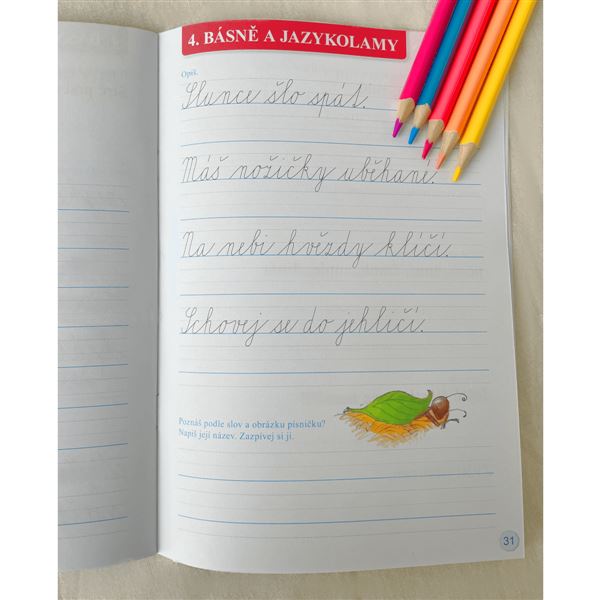 4. BÁSNĚ A JAZYKOLAMY
Opiš.
Slunce šlo spát.
Máš nožičky uběhané.
Na nebi hvězdy klíčí.
Schovej se do jehličí.
Poznáš podle slov a obrázku písničku?
Napiš její název. Zazpívej si ji.
31